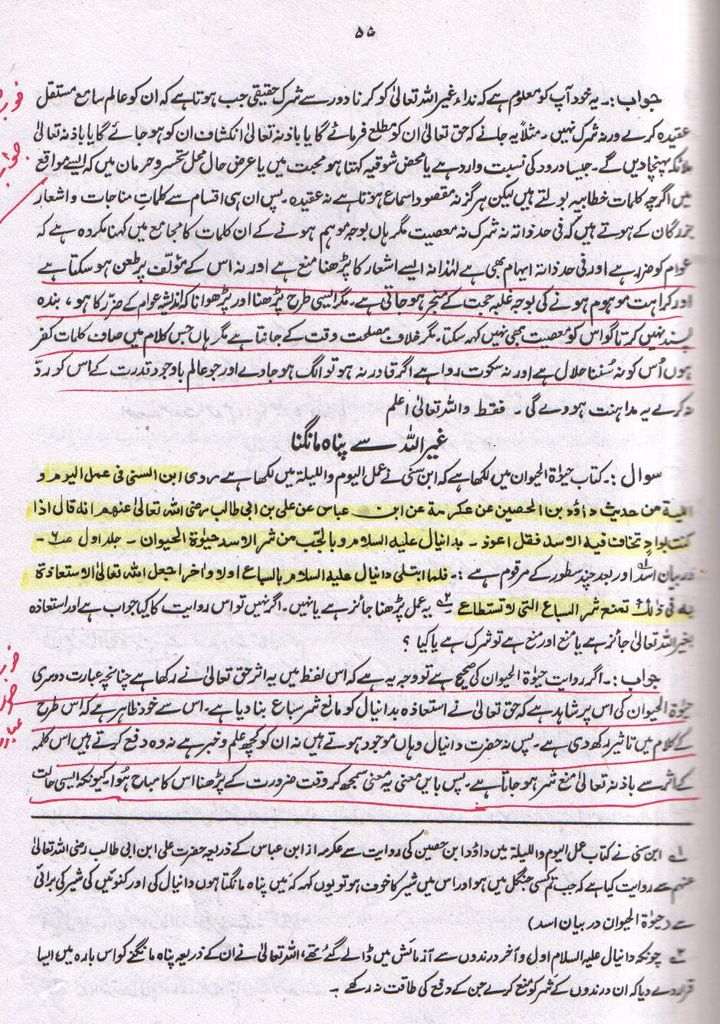 ۵۵
جواب :۔ یہ خود آپ کو معلوم ہے کہ نداء غیر اللہ تعالیٰ کو کرنا دور سے شرک حقیقی جب ہوتا ہے کہ ان کو عالم سامع مستقل
عقیدہ کرے ورنہ شرک نہیں۔ مثلاً یہ جانے کہ حق تعالیٰ ان کو مطلع فرمائے گا یا باذنہ تعالیٰ انکشاف ان کو ہو جائے گا یا باذنہ تعالیٰ
ملائکہ پہنچا دیں گے۔ جیسا درود کی نسبت وارد ہے یا محض شوقیہ کہتا ہو محبت میں یا عرض حال محل تحسر و حرمان میں کہ ایسے مواقع
میں اگرچہ کلمات خطابیہ بولتے ہیں لیکن ہرگز نہ مقصود اسماع ہوتا ہے نہ عقیدہ۔ پس ان ہی اقسام سے کلمات مناجات و اشعار
بزرگان کے ہوتے ہیں کہ فی حد ذاتہ نہ شرک نہ معصیت مگر ہاں بوجہ موہم ہونے کے ان کلمات کا مجامع میں کہنا مکروہ ہے کہ
عوام کو ضرر ہے اور فی حد ذاتہ ابہام بھی ہے لہٰذا نہ ایسے اشعار کا پڑھنا منع ہے اور نہ اس کے مؤلف پر طعن ہو سکتا ہے
اور کراہت موہوم ہونے کی بوجہ غلبہ محبت کے منجر ہو جاتی ہے۔ مگر ایسی طرح پڑھنا اور پڑھوانا کہ اندیشہ عوام کے ضرر کا ہو، بندہ
پسند نہیں کرتا گو اس کو معصیت بھی نہیں کہہ سکتا۔ مگر خلاف مصلحت وقت کے جانتا ہے مگر ہاں جس کلام میں صاف کلمات کفر
ہوں اُس کو نہ سُننا حلال ہے اور نہ سکوت روا ہے اگر قادر نہ ہو تو الگ ہو جاوے اور جو عالم باوجود قدرت کے اس کو ردّ
نہ کرے یہ مداہنت ہووے گی۔ فقط واللہ تعالیٰ اعلم
غیر اللہ سے پناہ مانگنا
سوال :۔ کتاب حیوٰۃ الحیوان میں لکھا ہے کہ ابن سنی نے عمل الیوم واللیلۃ میں لکھا ہے روی ابن السنی فی عمل الیوم و
اللیلۃ من حدیث داؤد بن الحصین عن عکرمۃ عن ابن عباس عن علی بن ابی طالب رضی اللہ تعالیٰ عنہم انہ قال اذا
کنت بواد تخاف فیہ الاسد فقل اعوذ۔ بدانیال علیہ السلام وبالجب من شر الاسد حیوٰۃ الحیوان۔ جلد اول صـ ۶۔
در بیان اسد ۱؎ اور بعد چند سطور کے مرقوم ہے :۔ فلما ابتلی دانیال علیہ السلام بالسباع اولا واخرا جعل اللہ تعالیٰ الاستعاذۃ
بہ فی ذلک تمنع شر السباع التی لا تستطاع ۲؎ یہ عمل پڑھنا جائز ہے یا نہیں۔ اگر نہیں تو اس روایت کا کیا جواب ہے اور استعاذہ
بغیر اللہ تعالیٰ جائز ہے یا منع اور منع ہے تو شرک ہے یا کیا ؟
جواب :۔ اگر روایت حیوٰۃ الحیوان کی صحیح ہے تو وجہ یہ ہے کہ اس لفظ میں یہ اثر حق تعالیٰ نے رکھا ہے چنانچہ عبارت دوسری
حیوٰۃ الحیوان کی اس پر شاہد ہے کہ حق تعالیٰ نے استعاذہ بدانیال کو مانع شر سباع بنا دیا ہے۔ اس سے خود ظاہر ہے کہ اس طرح
کے کلام میں تاثیر رکھ دی ہے۔ پس نہ حضرت دانیال وہاں موجود ہوتے ہیں نہ ان کو کچھ علم و خبر ہے نہ وہ دفع کرتے ہیں اس کلمہ
کے اثر سے باذنہ تعالیٰ منع شر ہو جاتا ہے۔ پس بایں معنی یہ معنی سمجھ کر وقت ضرورت کے پڑھنا اس کا مباح ہُوا۔ کیونکہ ایسی حالت
۱؎ ابن سنی نے کتاب عمل الیوم واللیلۃ میں داؤد ابن حصین کی روایت سے عکرمہ از ابن عباس کے ذریعہ حضرت علی ابن ابی طالب رضی اللہ تعالیٰ
عنہم سے روایت کیا ہے کہ جب تم کسی جنگل میں ہو اور اس میں شیر کا خوف ہو تو یوں کہو کہ میں پناہ مانگتا ہوں دانیال کی اور کنوئیں کی شیر کی برائی
سے (حیوٰۃ الحیوان در بیان اسد)
۲؎ چونکہ دانیال علیہ السلام اول و آخر درندوں سے آزمائش میں ڈالے گئے تھے، اللہ تعالیٰ نے ان کے ذریعہ پناہ مانگنے کو اس بارہ میں ایسا
قرار دے دیا کہ ان درندوں کے شر کو منع کرے جن کے دفع کی طاقت نہ رکھے۔